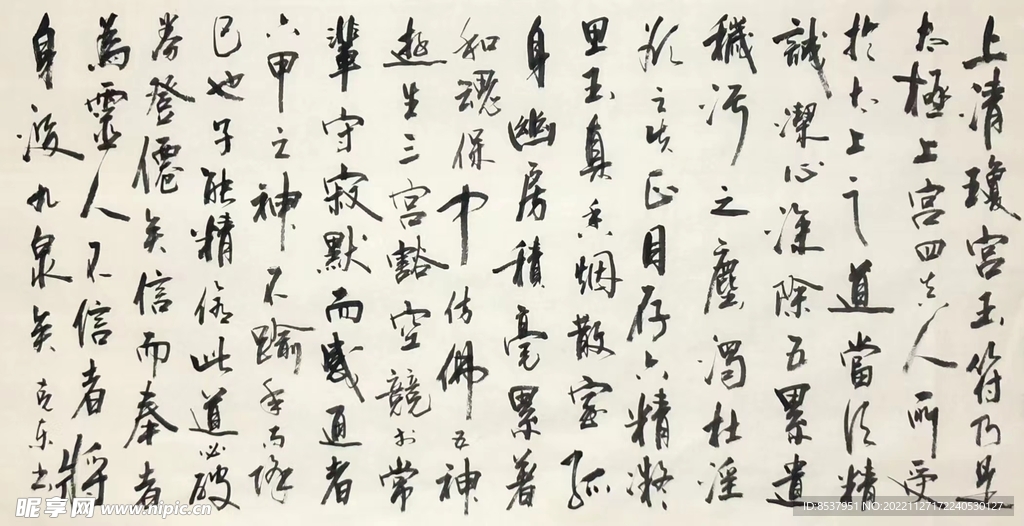 上清瓊宮玉符乃是
太極上宮四真人所受
於太上之道當須精
誠潔心澡除五累遺
穢污之塵濁杜淫
欲之失正目存六精凝
思玉真香烟散室孤
身幽房積毫累著
和魂保中仿佛五神
遊生三宮豁空競於常
輩守寂默而感通者
六甲之神不踰年而降
已也子能精修此道必破
券登僊矣信而奉者
為靈人不信者將
身沒九泉矣 克东书
昵享网 www.nipic.cn
ID:8537951 NO:20221127172240530127